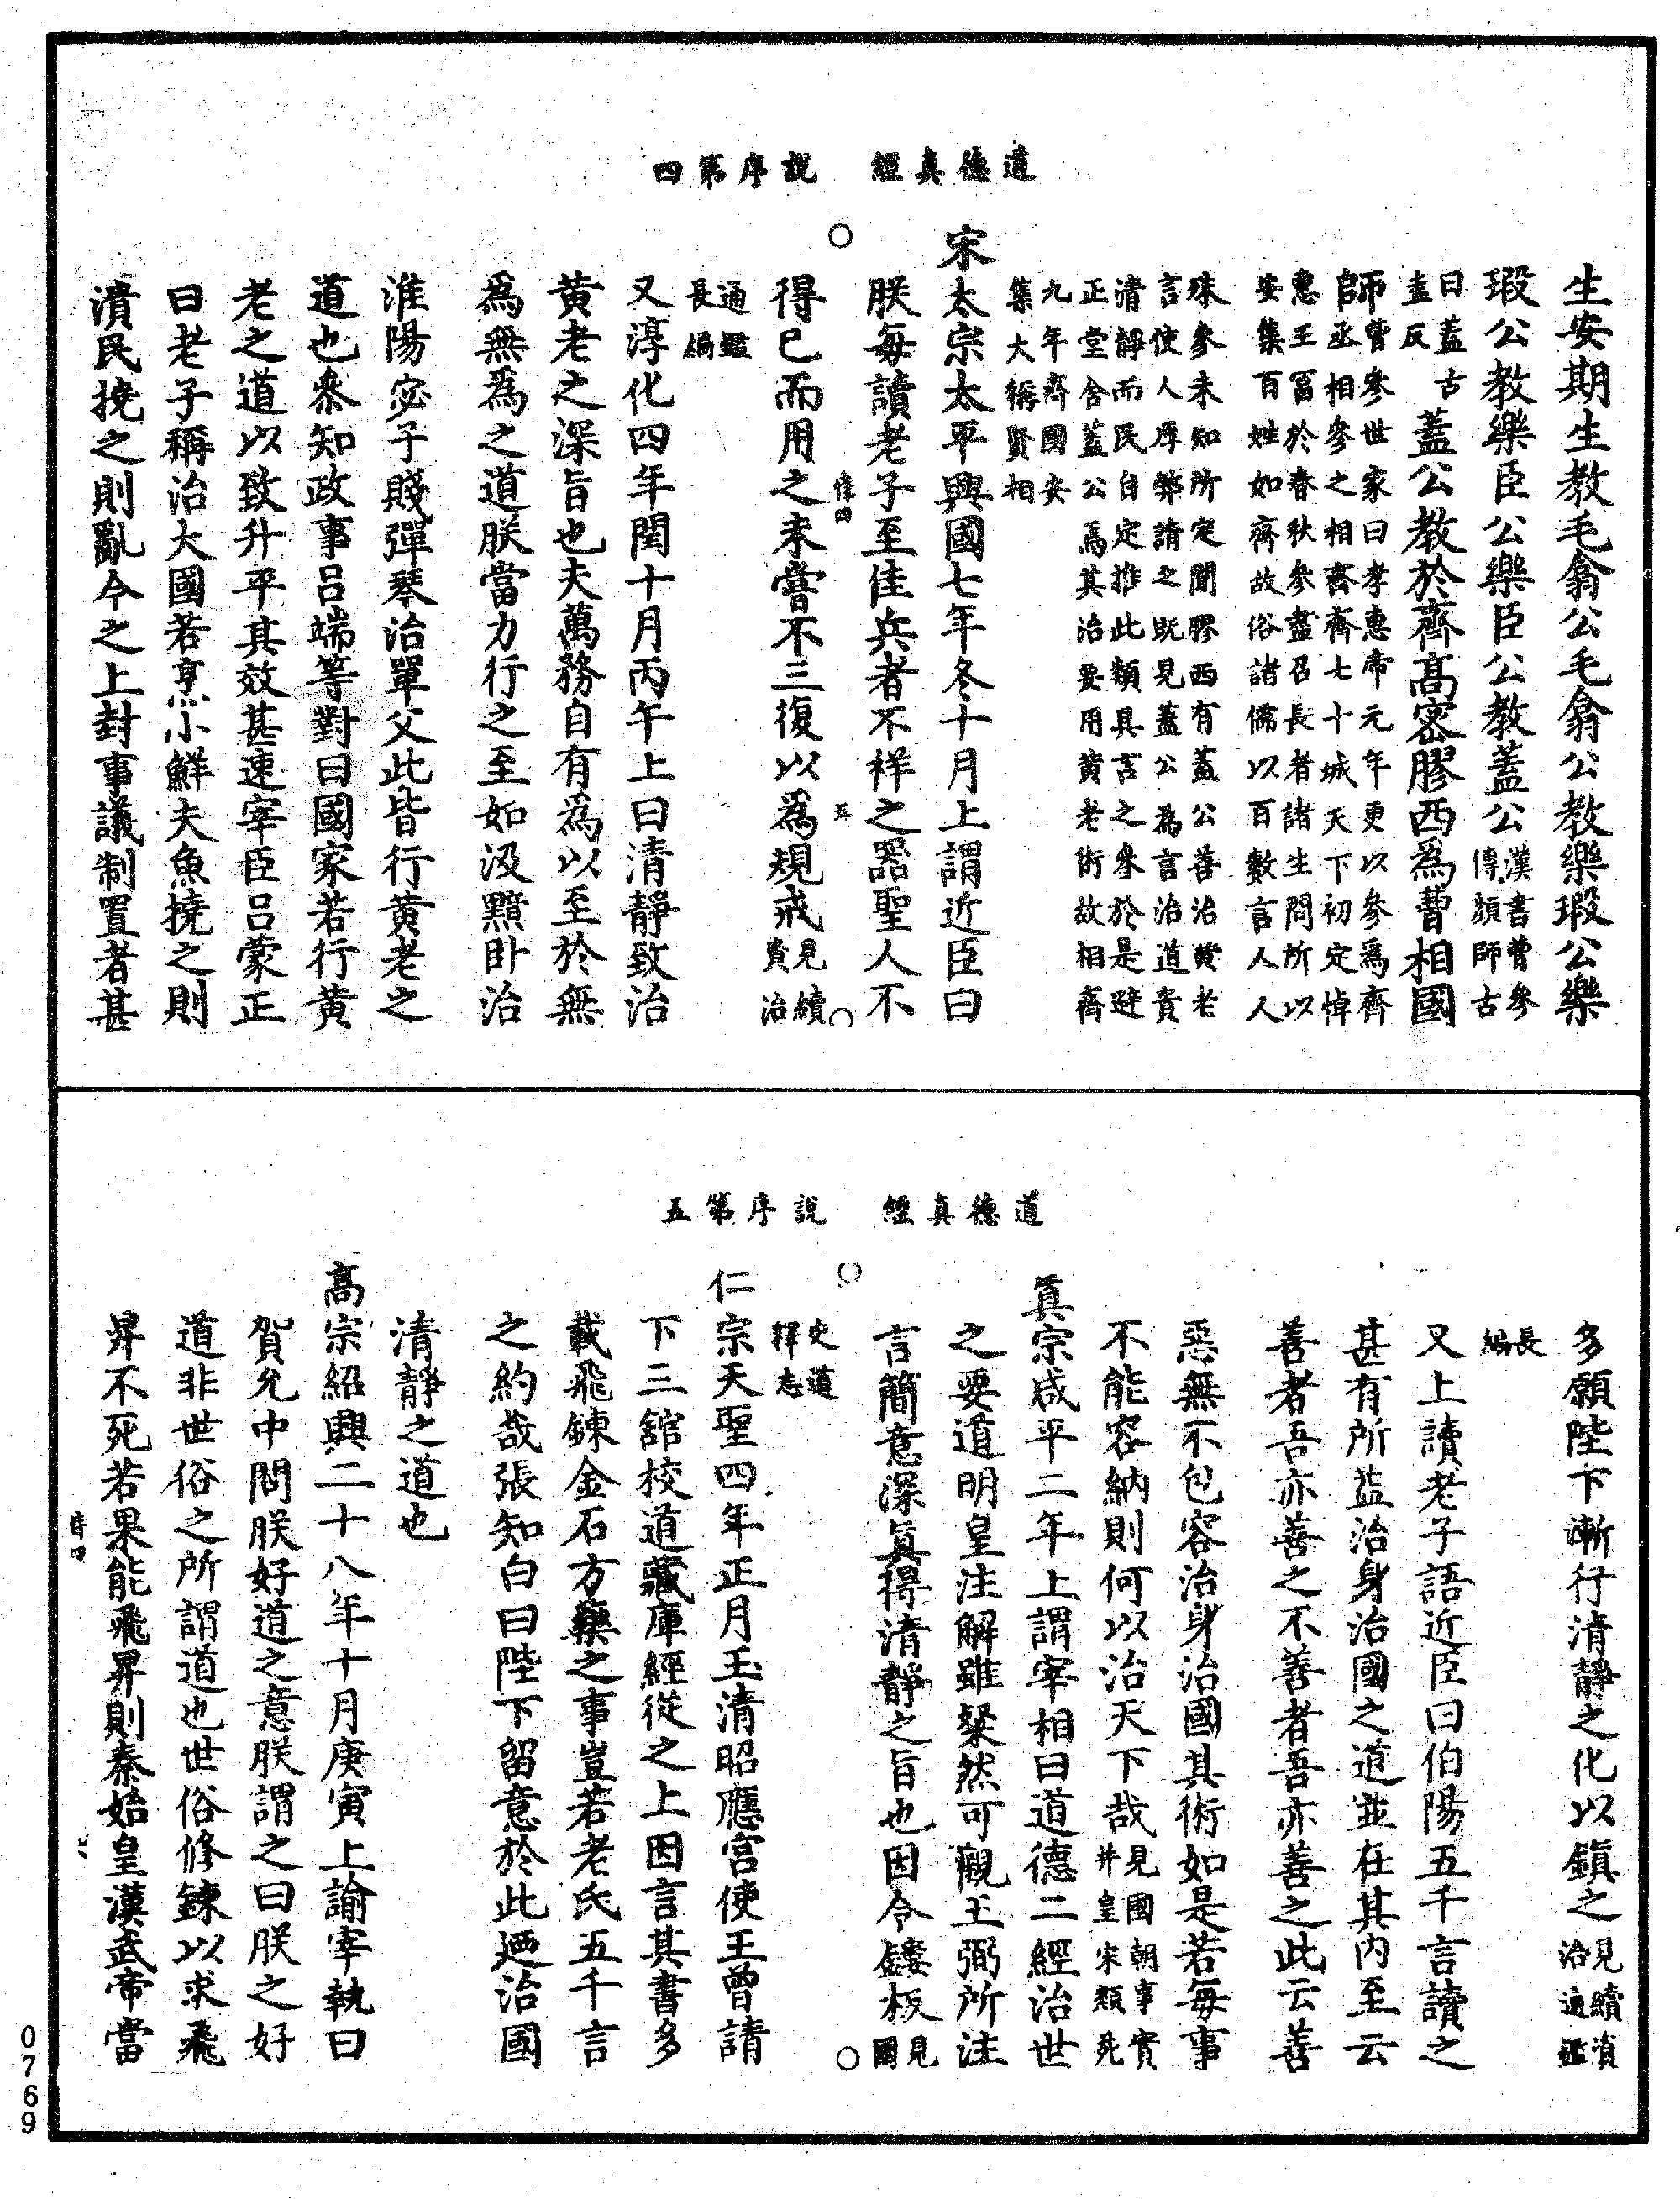 道德真經　說序第四
生安期生教毛翕公毛翕公教樂瑕公樂
瑕公教樂臣公樂臣公教蓋公漢書曹參傳顏師古
曰蓋古盍反蓋公教於齊高密膠西爲曹相國
師曹參世家曰孝惠帝元年更以參爲齊丞相參之相齊齊七十城天下初定悼
惠王冨於春秋參盡召長者諸生問所以安集百姓如齊故俗諸儒以百數言人人
殊參未知所定聞膠西有蓋公善治黃老言使人厚幣請之既見蓋公爲言治道貴
清靜而民自定推此類具言之參於是避正堂舍蓋公焉其治要用黄老術故相齊
九年齊國安集大稱賢相
宋太宗太平興國七年冬十月上謂近臣曰
朕每讀老子至佳兵者不祥之器聖人不
得已而用之未嘗不三復以爲規戒見續資治
通鑑長編
又淳化四年閏十月丙午上曰清靜致治
黄老之深旨也夫萬務自有爲以至於無
爲無爲之道朕當力行之至如汲黯卧治
淮陽宓子賤彈琴治單父此皆行黄老之
道也叅知政事吕端等對曰國家若行黄
老之道以致升平其效甚速宰臣吕蒙正
曰老子稱治大國若烹小鮮夫魚撓之則
潰民撓之則亂今之上封事議制置者甚
道德真經　說序第五
多願陛下漸行清靜之化以鎮之見續資治通鑑
長編
又上讀老子語近臣曰伯陽五千言讀之
甚有所益治身治國之道並在其内至云
善者吾亦善之不善者吾亦善之此云善
惡無不包容治身治國其術如是若每事
不能容納則何以治天下哉見國朝事實并皇宋類苑
真宗咸平二年上謂宰相曰道德二經治世
之要道明皇注解雖粲然可觀王弼所注
言簡意深真得清靜之旨也因令鏤板見國
史道釋志
仁宗天聖四年正月玉清昭應宮使王曾請
下三舘校道藏庫經從之上因言其書多
載飛鍊金石方藥之事豈若老氏五千言
之約哉張知白曰陛下留意於此廼治國
清靜之道也
高宗紹興二十八年十月庚寅上諭宰執曰
賀允中問朕好道之意朕謂之曰朕之好
道非世俗之所謂道也世俗修鍊以求飛
昇不死若果能飛昇則秦始皇漢武帝當
0769